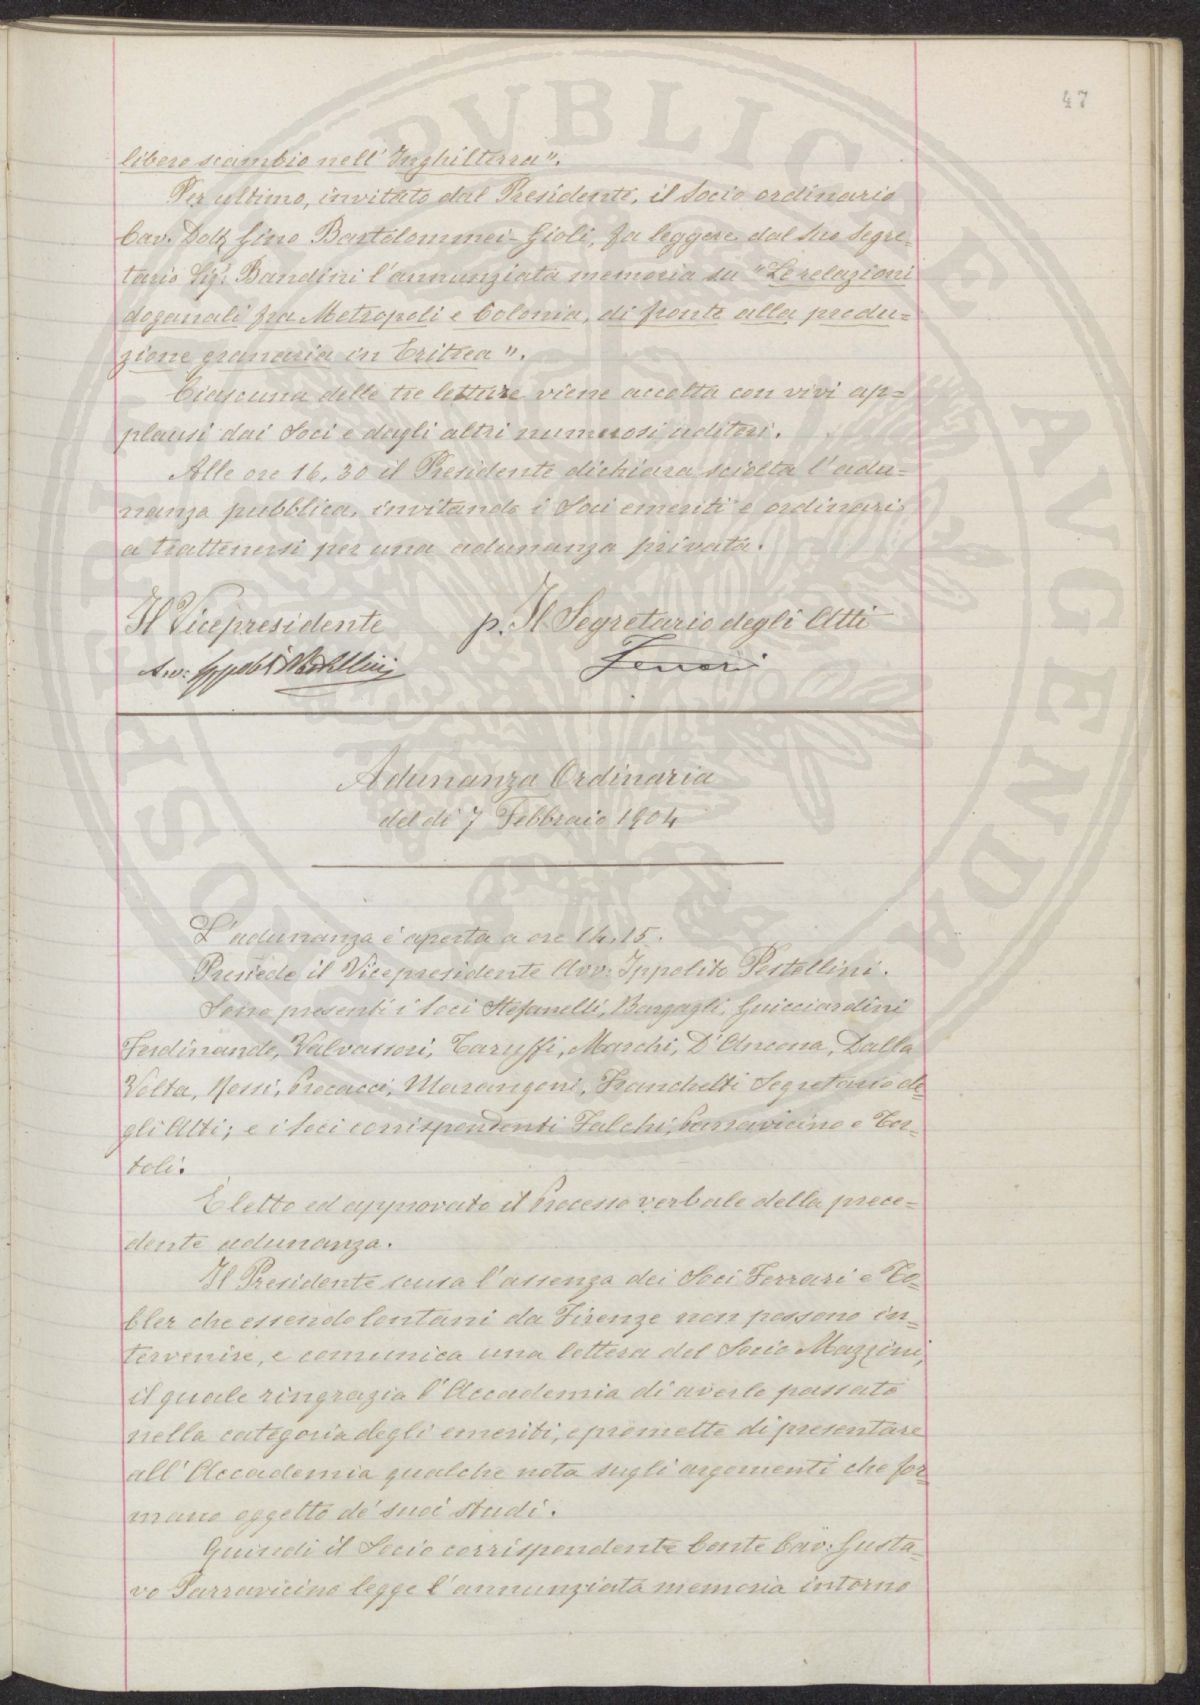 47
libero scambio nell' Inghilterra".
Per ultimo, invitato dal Presidente, il Socio ordinario
Cav. Dott. Gino Bartolommei-Gioli, fa leggere dal suo Segre-
tario Sig. Bandini l'annunziata memoria su "Le relazioni
doganali fra Metropoli e Colonia, di fronte alla produ=
zione granaria in Eritrea".
Ciascuna delle tre letture viene accolta con vivi ap=
plausi dai Soci e dagli altri numerosi uditori.
Alle ore 16,30 il Presidente dichiara sciolta l'adu=
nanza pubblica, invitando i Soci emeriti e ordinari
a trattenersi per una adunanza privata.
Il Vicepresidente p. Il Segretario degli Atti
Avv: Ippolito Pestellini
Adunanza Ordinaria
del dì 7 Febbraio 1904
L'adunanza è aperta a ore 14,15.
Presiede il Vicepresidente Avv: Ippolito Pestellini.
Sono presenti i Soci Stefanelli, Bargagli, Guicciardini
Ferdinando, Valvassori, Caruffi, Marchi, D'Ancona, Dalla
Volta, Rossi, Procacci, Marangoni, Franchetti Segretario de-
gli Atti; e i Soci corrispondenti Falchi, Parravicino e Tor-
toli.
È letto ed approvato il Processo verbale della prece=
dente adunanza.
Il Presidente scusa l'assenza dei Soci Ferrari e To-
bler che essendo lontani da Firenze non possono in=
tervenire, e comunica una lettera del Socio Mazzini,
il quale ringrazia l'Accademia di averlo passato
nella categoria degli emeriti, e promette di presentare
all'Accademia qualche nota sugli argomenti che for-
mano oggetto de' suoi studi.
Quindi il Socio corrispondente Conte Cav: Gusta-
vo Parravicino legge l'annunziata memoria intorno
PVBLICAE AVGENDA PROSPERITATI